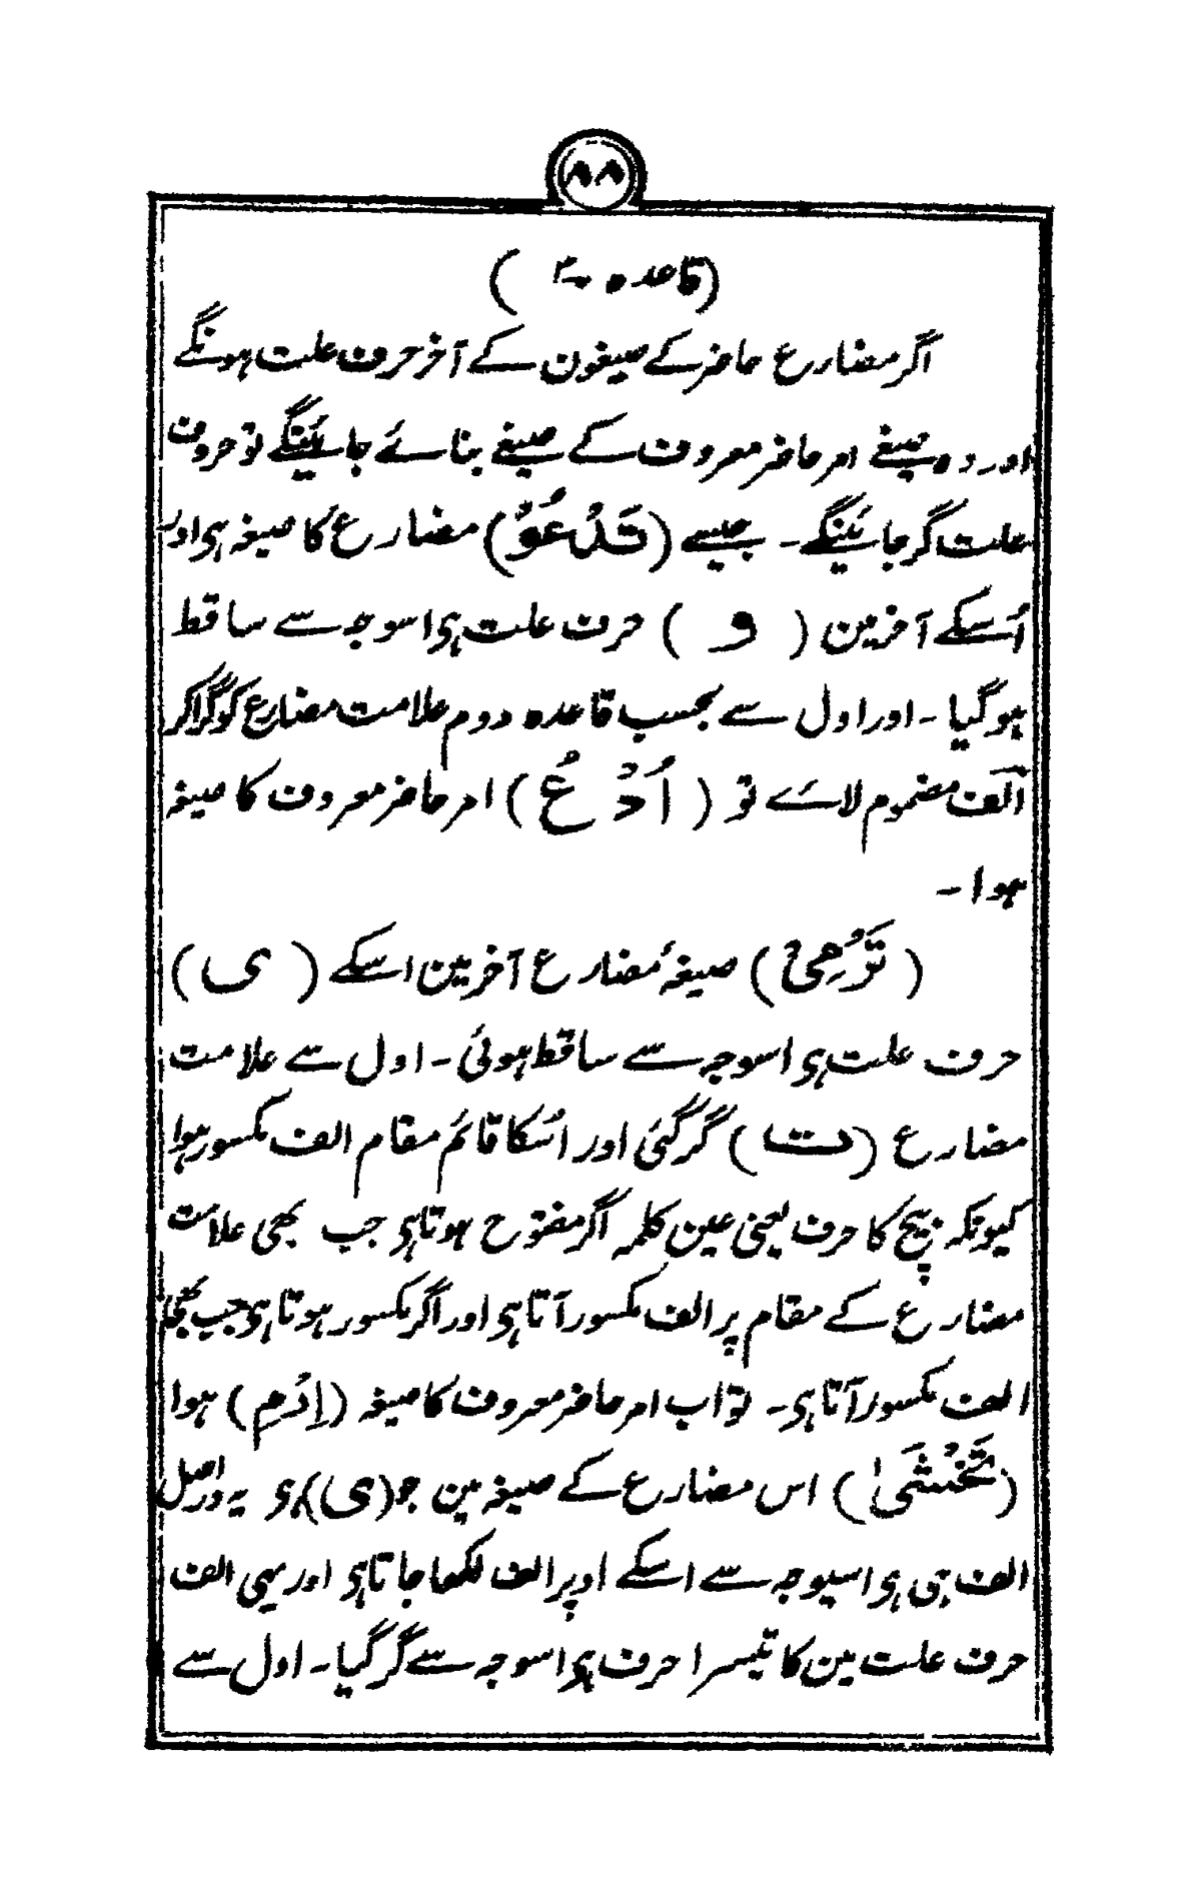 ۸۸
(قاعدہ ۴۰)
اگر مضارع حاضر کے صیغون کے آخر حرف علت ہونگے
اور وہ صیغے امر حاضر معروف کے صیغے بنائے جائینگے تو حروف
علت گر جائینگے۔ جیسے (تَدْعُوْ) مضارع کا صیغہ ہی اور
اُسکے آخر مین ( و ) حرف علت ہی اسوجہ سے ساقط
ہوگیا۔ اور اول سے بحسب قاعدہ دوم علامت مضارع کو گراکر
الف مضموم لائے تو ( اُدْ عُ ) امر حاضر معروف کا صیغہ
ہوا۔
( تَرْمِیْ ) صیغۂ مضارع آخر مین اسکے ( ی )
حرف علت ہی اسوجہ سے ساقط ہوئی۔ اول سے علامت
مضارع (ت) گر گئی اور اُسکا قائم مقام الف مکسور ہوا
کیونکہ بیچ کا حرف یعنی عین کلمہ اگر مفتوح ہوتا ہی جب بھی علامت
مضارع کے مقام پر الف مکسور آتا ہی اور اگر مکسور ہوتا ہی جب بھی
الف مکسور آتا ہی۔ تو اب امر حاضر معروف کا صیغہ (اِرْمِ) ہوا
(تَخْشَیٰ) اس مضارع کے صیغہ مین جو (ی) ہی یہ در اصل
الف ہی ہی اسیوجہ سے اسکے اوپر الف لکھا جاتا ہی اور یہی الف
حرف علت مین کا تیسرا حرف ہی اسوجہ سے گر گیا۔ اول سے